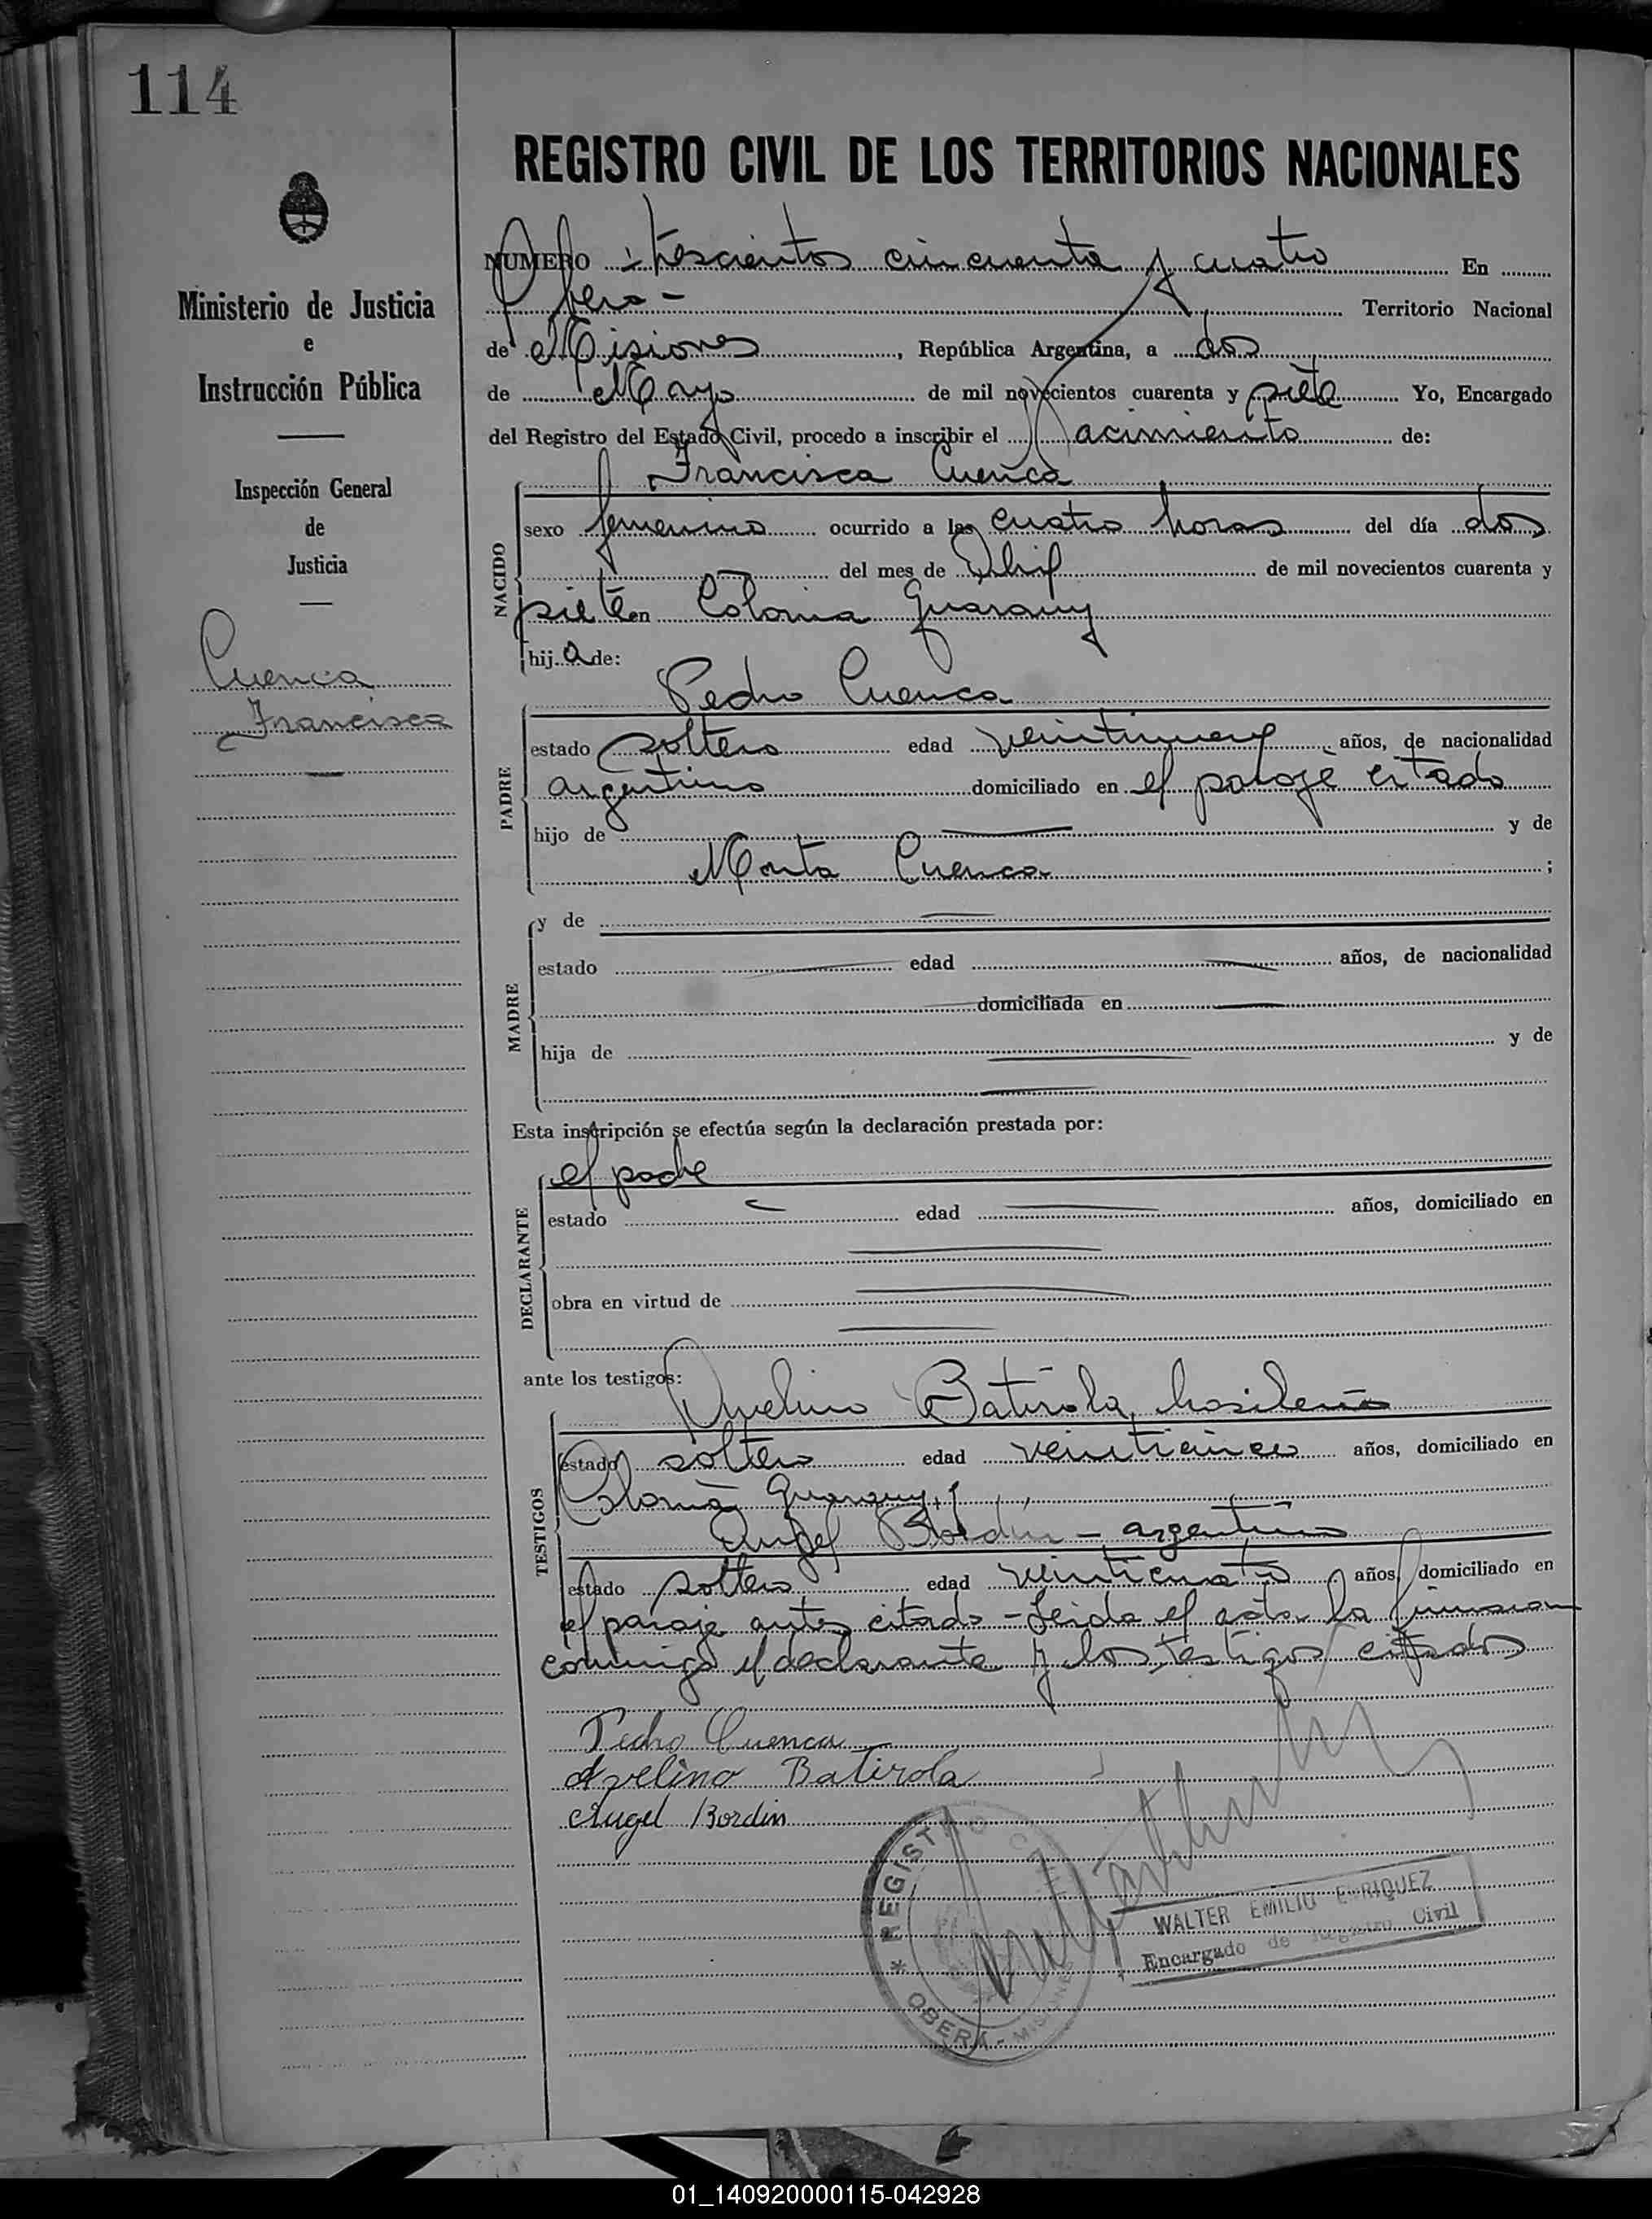 114
REGISTRO CIVIL DE LOS TERRITORIOS NACIONALES
Ministerio de Justicia
e
Instrucción Pública
Inspección General
de
Justicia
Cuenca
Francisca
NUMERO : trescientos cincuenta y cuatro En
Oberá - Territorio Nacional
de Misiones, República Argentina, a dos
de Mayo de mil novecientos cuarenta y siete Yo, Encargado
del Registro del Estado Civil, procedo a inscribir el Nacimiento de:
Francisca Cuenca
NACIDO
sexo femenino ocurrido a las cuatro horas del día dos
del mes de Abril de mil novecientos cuarenta y
siete en Colonia Guarany
hija de:
Pedro Cuenca
PADRE
estado soltero edad veintinueve años, de nacionalidad
argentino domiciliado en el paraje citado
hijo de — y de
Marta Cuenca ;
MADRE
y de —
estado — edad — años, de nacionalidad
— domiciliada en —
hija de — y de
—
Esta inscripción se efectúa según la declaración prestada por:
el padre
DECLARANTE
estado — edad — años, domiciliado en
—
obra en virtud de —
—
ante los testigos:
Avelino Batirola, brasileño
TESTIGOS
estado soltero edad veinticinco años, domiciliado en
Colonia Guarany y
Angel Bordin - argentino
estado soltero edad veinticuatro años, domiciliado en
el paraje antes citado - Leida el acta la firmaron
conmigo el declarante y los testigos citados
Pedro Cuenca
Avelino Batirola
Angel Bordin
* REGISTRO CIVIL
OBERÁ - MISIONES
WALTER EMILIO ENRIQUEZ
Encargado de Registro Civil
01_140920000115-042928